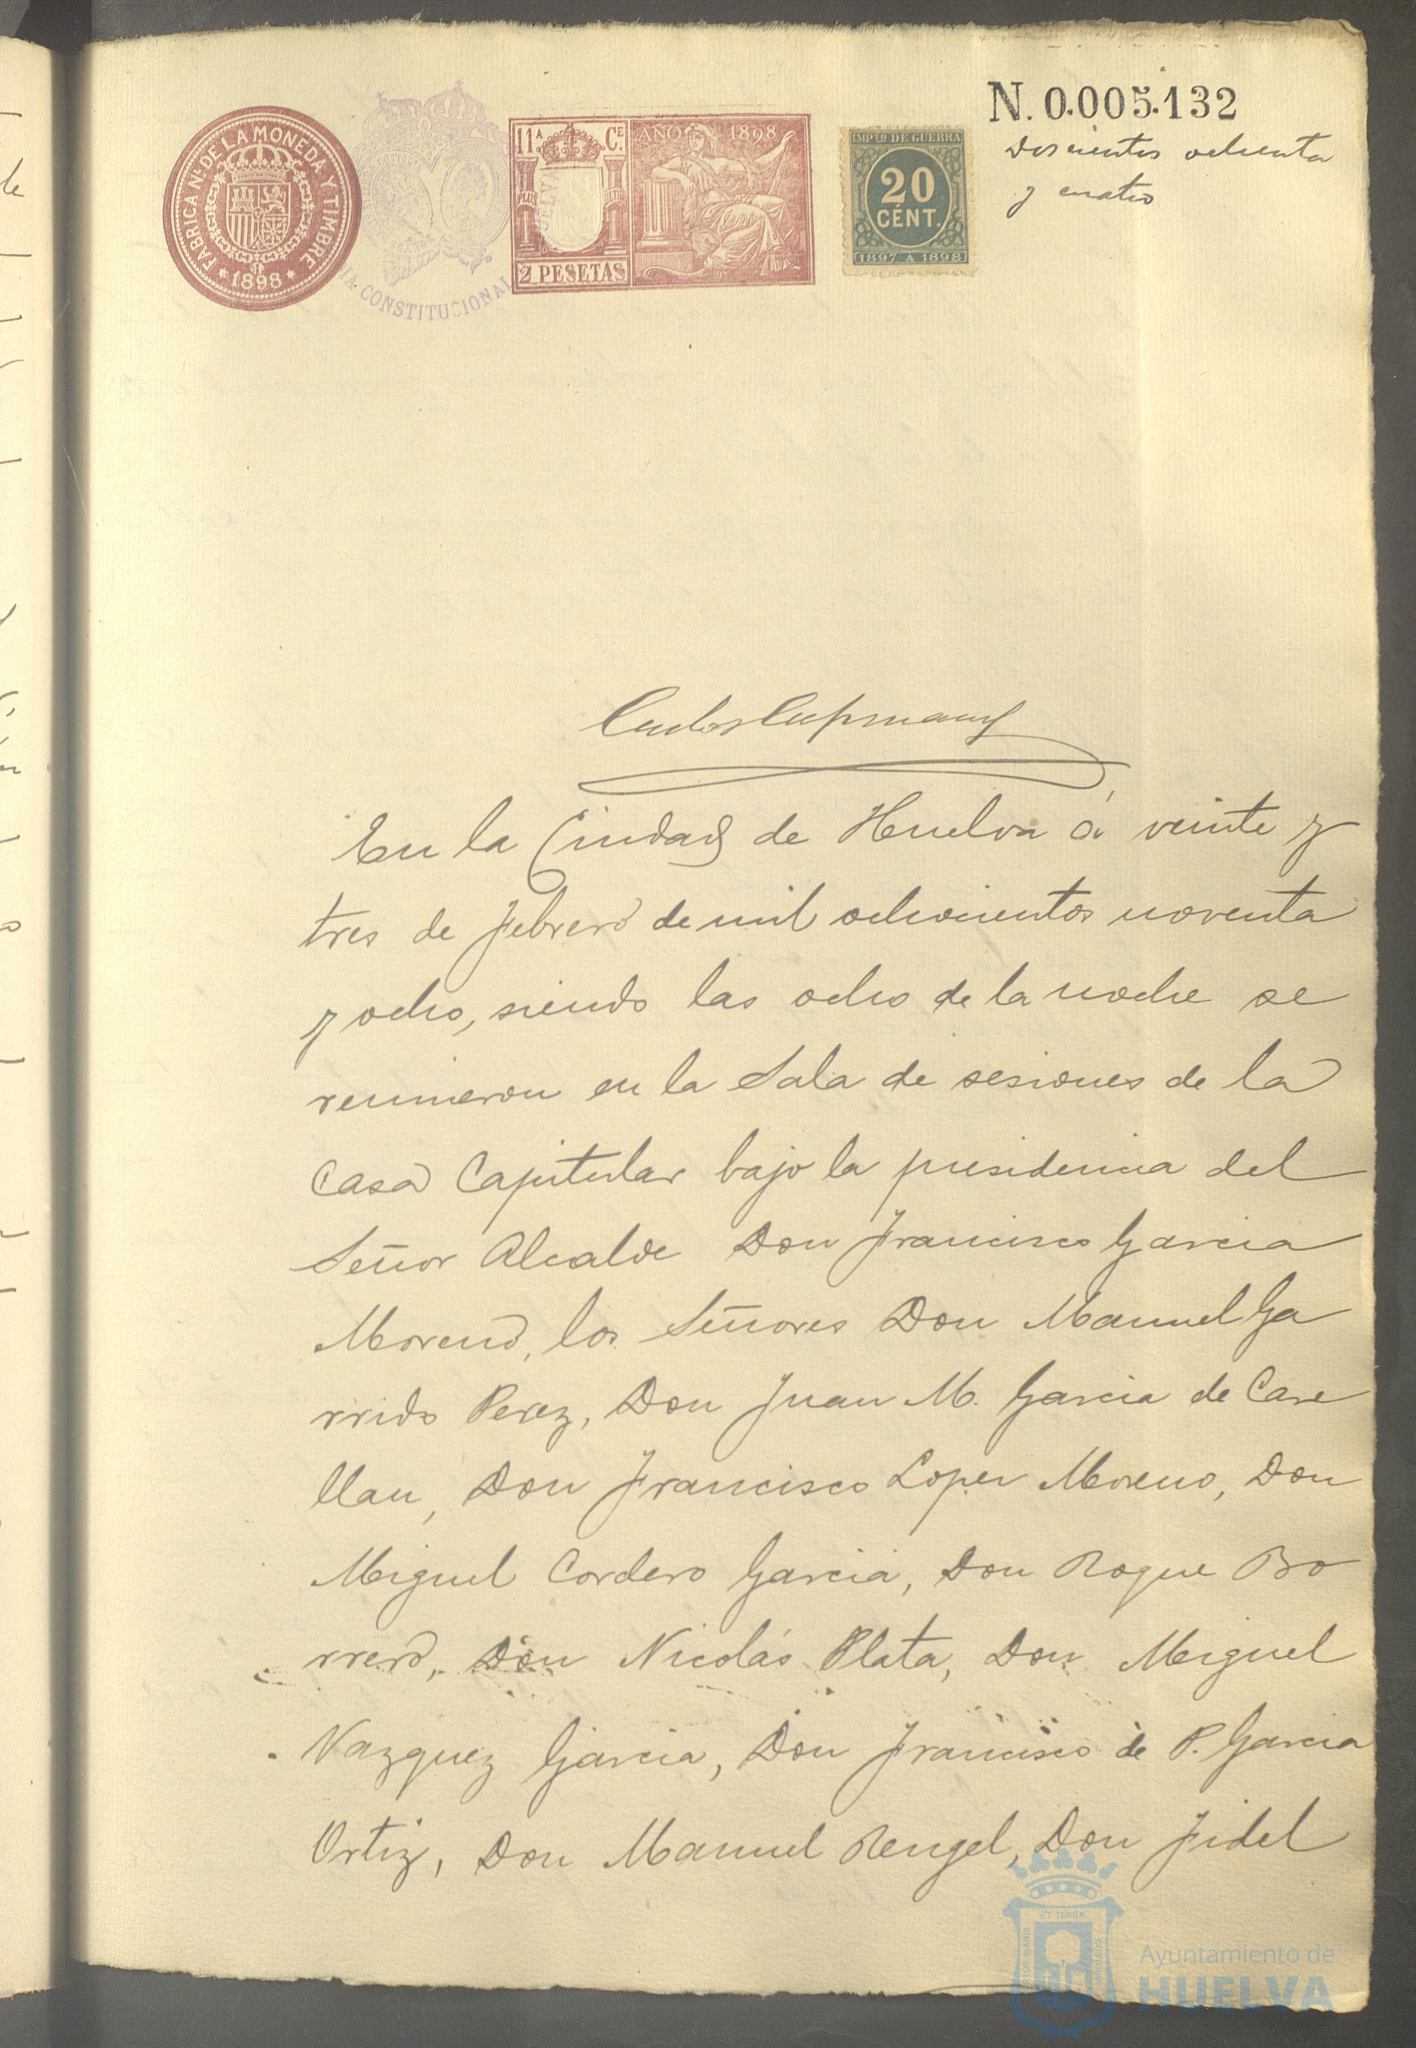 N. 0.005.132
Doscientos ochenta
y cuatro
FABRICA Nl. DE LA MONEDA Y TIMBRE
* 1898 *
CONSTITUCIONAL
11ª Cᴱ
2 PESETAS
AÑO 1898
IMPTO DE GUERRA
20
CÉNT.
1897 A 1898
En la Ciudad de Huelva á veinte y
tres de Febrero de mil ochocientos noventa
y ocho, siendo las ocho de la noche se
reunieron en la Sala de sesiones de la
Casa Capitular bajo la presidencia del
Señor Alcalde Don Francisco Garcia
Moreno, los Señores Don Manuel Ga
rrido Perez, Don Juan M. Garcia de Cave
llan, Don Francisco Lopez Moreno, Don
Miguel Cordero Garcia, Don Roque Bo
rrero, Don Nicolás Plata, Don Miguel
Vazquez Garcia, Don Francisco de P. Garcia
Ortiz, Don Manuel Rengel, Don Fidel
Ayuntamiento de
HUELVA